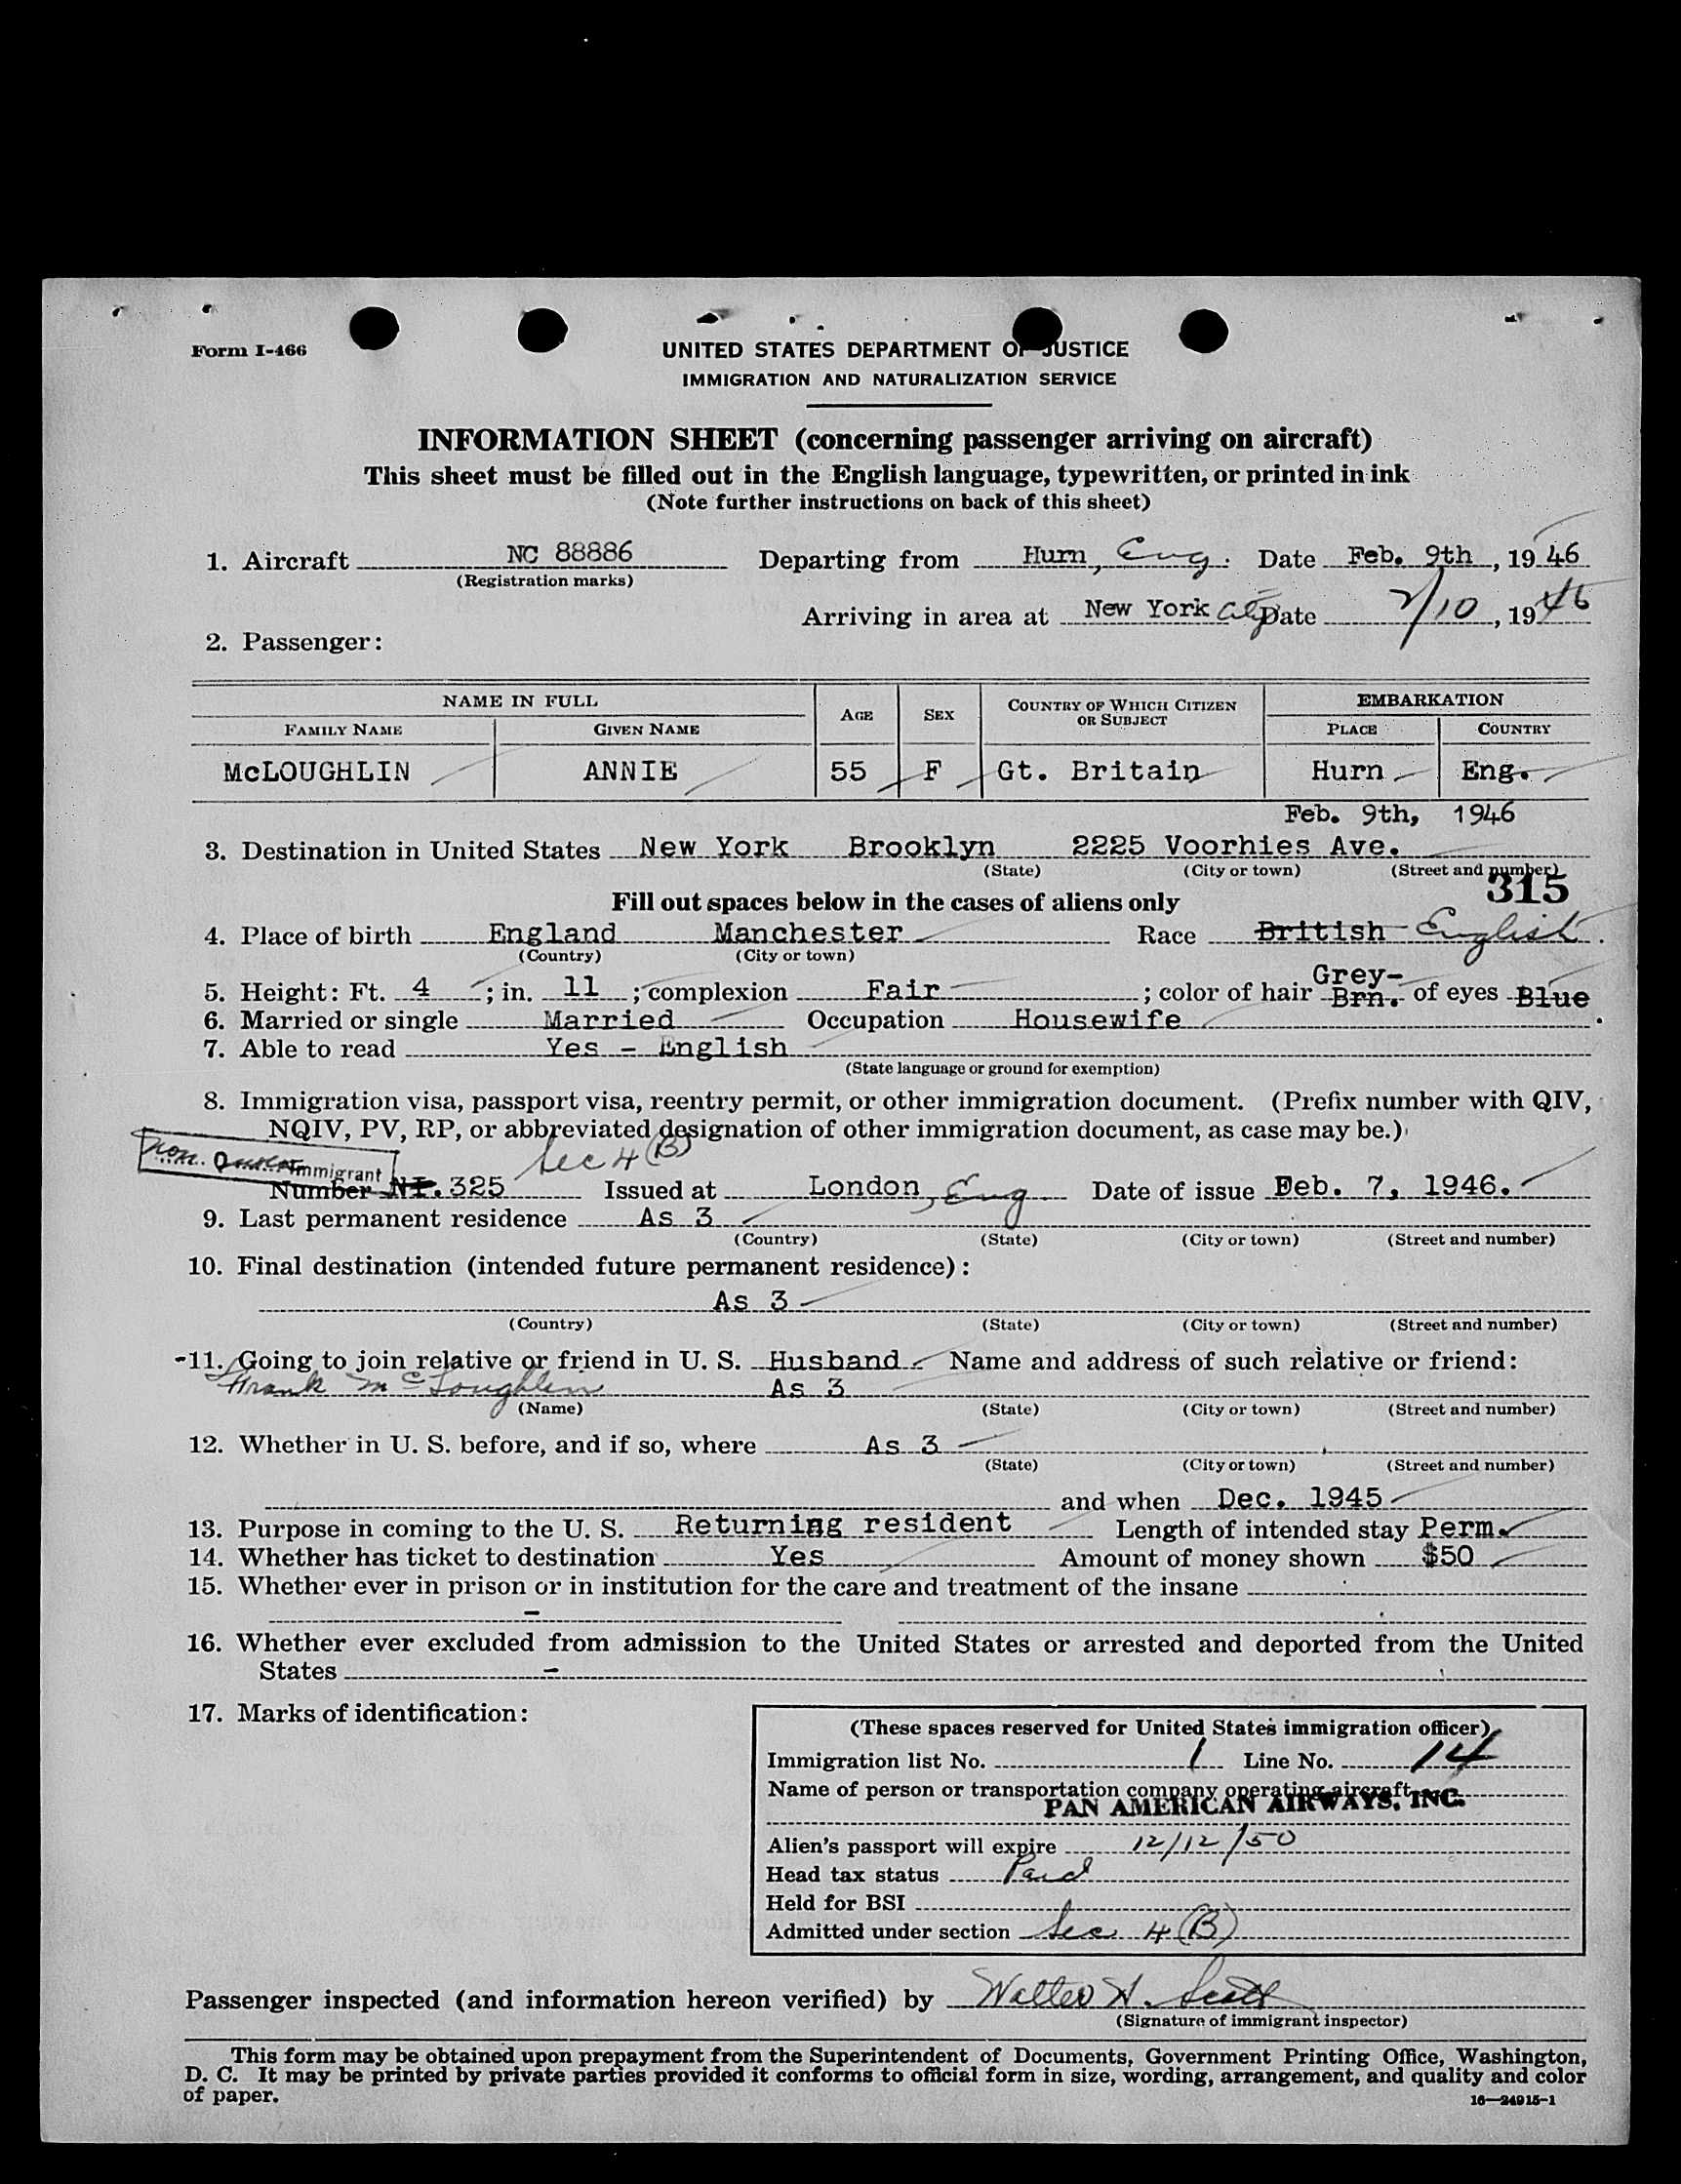 Form I-466
UNITED STATES DEPARTMENT OF JUSTICE
IMMIGRATION AND NATURALIZATION SERVICE
INFORMATION SHEET (concerning passenger arriving on aircraft)
This sheet must be filled out in the English language, typewritten, or printed in ink
(Note further instructions on back of this sheet)
1. Aircraft NC 88886 Departing from Hurn, Eng. Date Feb. 9th, 1946
(Registration marks)
Arriving in area at New York City Date 2/10, 1946
2. Passenger:
NAME IN FULL AGE SEX COUNTRY OF WHICH CITIZEN OR SUBJECT EMBARKATION
FAMILY NAME GIVEN NAME PLACE COUNTRY
McLOUGHLIN ANNIE 55 F Gt. Britain Hurn Eng.
Feb. 9th, 1946
3. Destination in United States New York Brooklyn 2225 Voorhies Ave.
(State) (City or town) (Street and number)
315
Fill out spaces below in the cases of aliens only
4. Place of birth England Manchester Race British English.
(Country) (City or town)
5. Height: Ft. 4; in. 11; complexion Fair; color of hair Grey-Brn. of eyes Blue
6. Married or single Married Occupation Housewife.
7. Able to read Yes - English
(State language or ground for exemption)
8. Immigration visa, passport visa, reentry permit, or other immigration document. (Prefix number with QIV,
NQIV, PV, RP, or abbreviated designation of other immigration document, as case may be.)
Non. Quota Immigrant Sec 4 (B)
Number NI. 325 Issued at London, Eng Date of issue Feb. 7, 1946.
9. Last permanent residence As 3
(Country) (State) (City or town) (Street and number)
10. Final destination (intended future permanent residence):
As 3
(Country) (State) (City or town) (Street and number)
11. Going to join relative or friend in U. S. Husband Name and address of such relative or friend:
Frank McLoughlin As 3
(Name) (State) (City or town) (Street and number)
12. Whether in U. S. before, and if so, where As 3
(State) (City or town) (Street and number)
and when Dec. 1945
13. Purpose in coming to the U. S. Returning resident Length of intended stay Perm.
14. Whether has ticket to destination Yes Amount of money shown $50
15. Whether ever in prison or in institution for the care and treatment of the insane
-
16. Whether ever excluded from admission to the United States or arrested and deported from the United
States -
17. Marks of identification:
(These spaces reserved for United States immigration officer)
Immigration list No. 1 Line No. 14
Name of person or transportation company operating aircraft
PAN AMERICAN AIRWAYS, INC.
Alien's passport will expire 12/12/50
Head tax status Paid
Held for BSI
Admitted under section Sec 4 (B)
Passenger inspected (and information hereon verified) by Walter H. Scott
(Signature of immigrant inspector)
This form may be obtained upon prepayment from the Superintendent of Documents, Government Printing Office, Washington,
D. C. It may be printed by private parties provided it conforms to official form in size, wording, arrangement, and quality and color
of paper.
16—24915-1